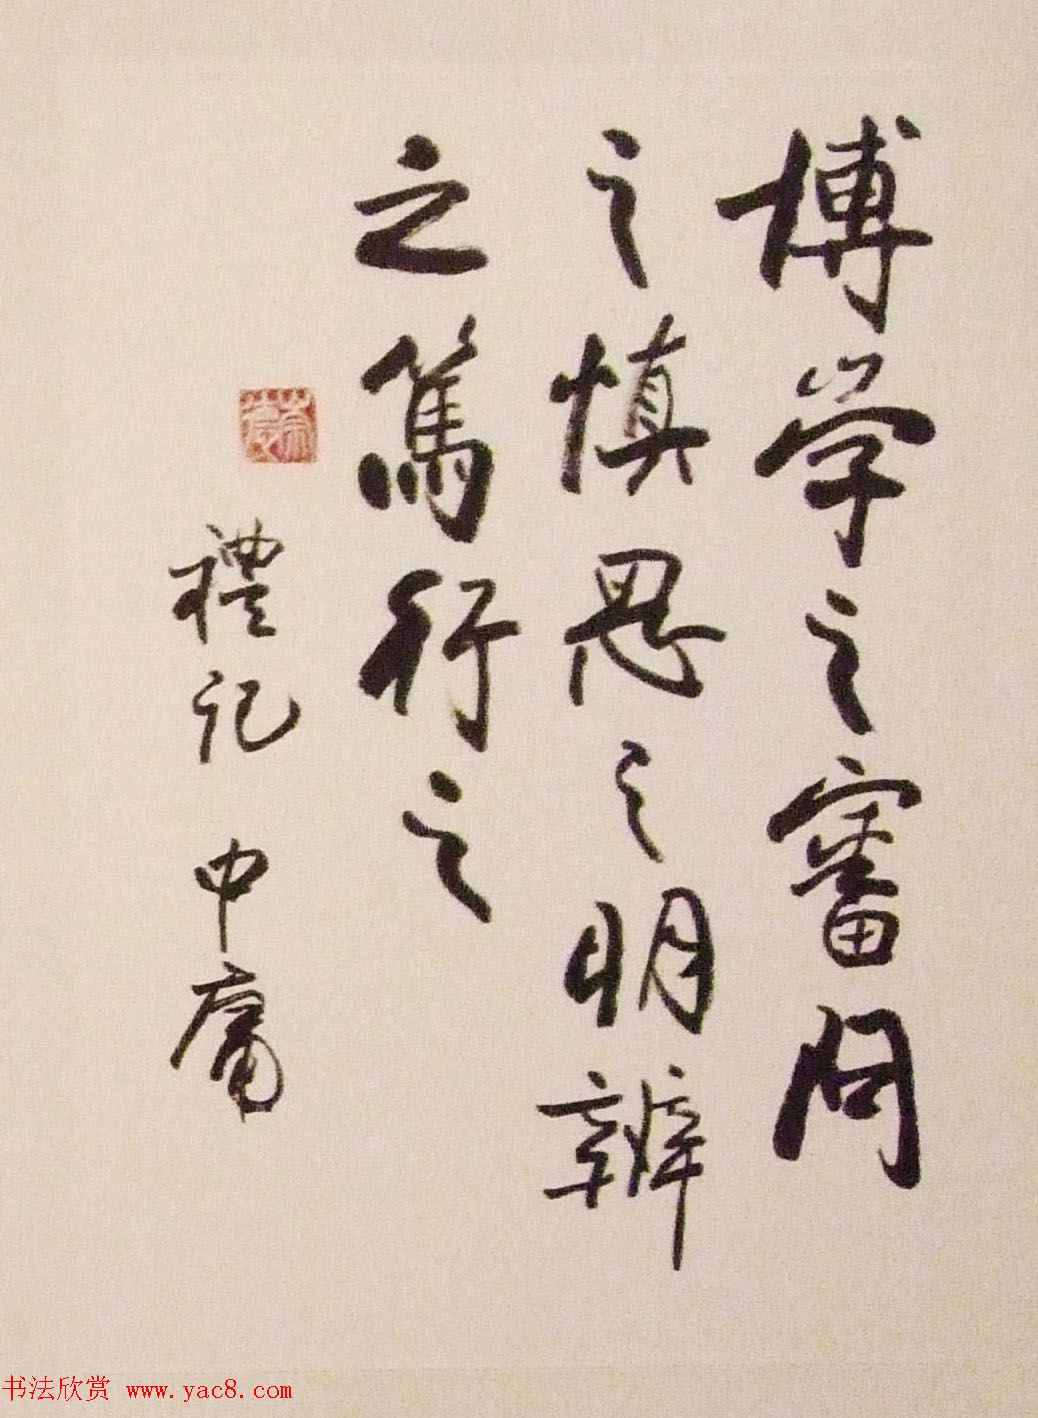 博学之審問
之慎思之明辨
之篤行之
禮記 中庸
书法欣赏 www.yac8.com